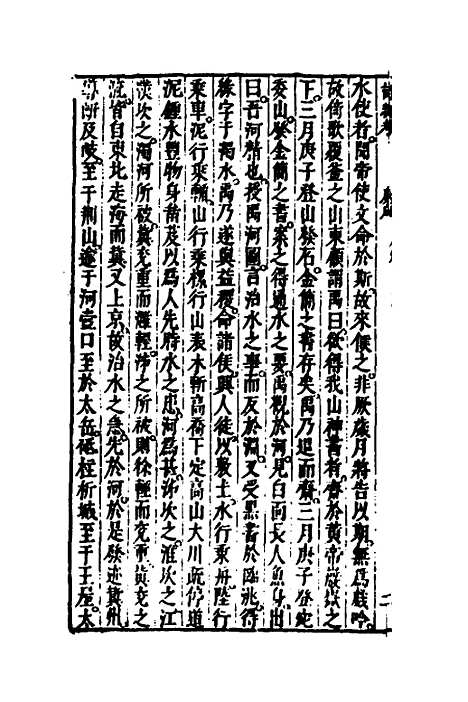 水使者聞帝使文命於斯故來候之非厥歲月將告以期無爲戲吟
故倚歌覆釜之山東顧謂禹曰欲得我山神書者齋於黃帝巖嶽之
下三月庚子登山發石金簡之書存矣禹乃退而齋三月庚子登宛
委山發金簡之書案之得通水之要禹觀於河見白面長人魚身出
曰吾河精也授禹河圖言治水之事而反於淵又受黑書於臨洮得
綠字于濁水禹乃遂與益稷命諸侯興人徒以敷土水行乘舟陸行
乘車泥行乘輴山行乘樏行山表木斬高喬下定高山大川疏停道
泥鍾水豐物身耑及以爲人先府水之患河爲甚泲次之淮次之江
漢次之濁河所被冀兗重而雍輕泲之所被則徐輕而兗重冀兗之
流皆自東北走海而冀又上京故治水之急先於河於是發迹冀州
所及岐至于荆山逾于河壺口至於太岳砥柱析城至于王屋太